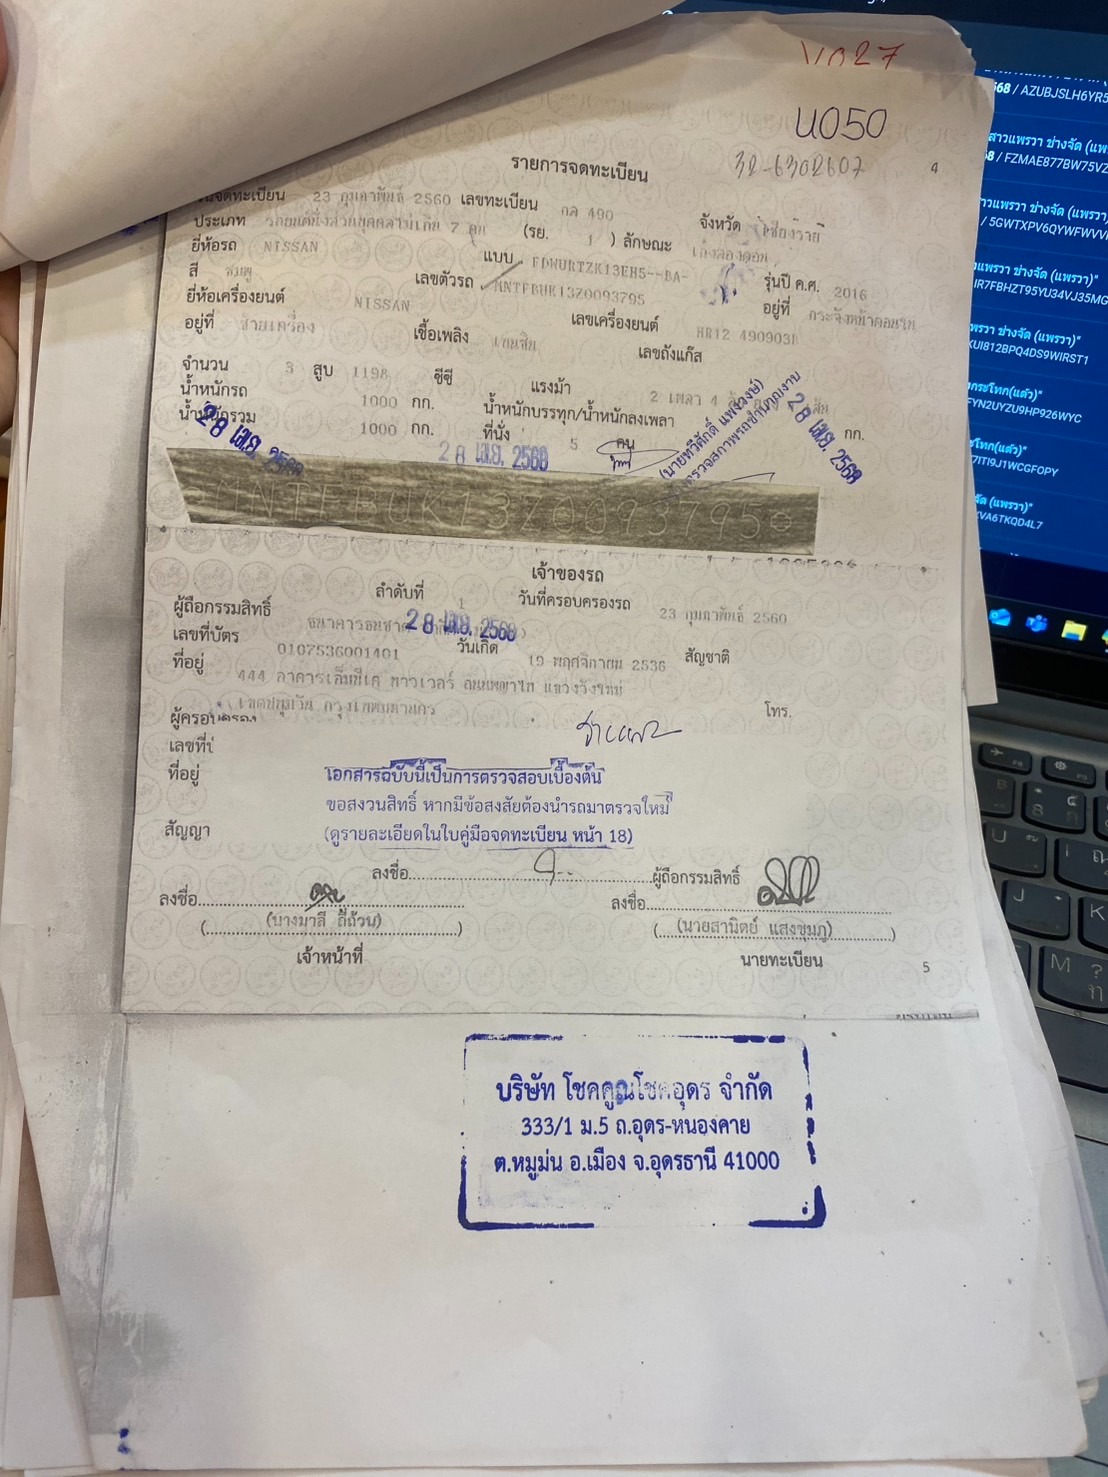 27
U050
รายการจดทะเบียน
32-6302607
4
จดทะเบียน 23 กุมภาพันธ์ 2560 เลขทะเบียน กล 490 จังหวัด เชียงราย
ประเภท รถยนต์นั่งส่วนบุคคลไม่เกิน 7 คน (รย. 1 ) ลักษณะ เก๋งสองตอน
ยี่ห้อรถ NISSAN แบบ FDWURTZK13EH5--BA- รุ่นปี ค.ศ. 2016
สี ชมพู เลขตัวรถ MNTFBUK13Z0093795 อยู่ที่ กระจังหน้าตอนใน
ยี่ห้อเครื่องยนต์ NISSAN เลขเครื่องยนต์ HR12 490903
อยู่ที่ ซ้ายเครื่อง เชื้อเพลิง เบนซิน เลขถังแก๊ส
จำนวน 3 สูบ 1198 ซีซี แรงม้า 2 เพลา 4 ล้อ
น้ำหนักรถ 1000 กก. น้ำหนักบรรทุก/น้ำหนักลงเพลา กก.
น้ำหนักรวม 1000 กก. ที่นั่ง 5 คน
28 เม.ย. 2568
28 เม.ย. 2568
(นายทวีศักดิ์ แพงวงษ์)
ตรวจสภาพรถชำนาญงาน
28 เม.ย. 2568
MNTFBUK13Z0093795
เจ้าของรถ
ลำดับที่ 1 วันที่ครอบครองรถ 23 กุมภาพันธ์ 2560
ผู้ถือกรรมสิทธิ์ ธนาคารธนชาต
28 เม.ย. 2568
เลขที่บัตร 0107536001401 วันเกิด 19 พฤศจิกายน 2536 สัญชาติ
ที่อยู่ 444 อาคารเอ็มบีเค ทาวเวอร์ ถนนพญาไท แขวงวังใหม่
เขตปทุมวัน กรุงเทพมหานคร โทร.
ผู้ครอบครอง
เลขที่
ที่อยู่
เอกสารฉบับนี้เป็นการตรวจสอบเบื้องต้น
ขอสงวนสิทธิ์ หากมีข้อสงสัยต้องนำรถมาตรวจใหม่
สัญญา (ดูรายละเอียดในใบคู่มือจดทะเบียน หน้า 18)
ลงชื่อ ผู้ถือกรรมสิทธิ์
ลงชื่อ ลงชื่อ
(นางมาลี ถี่ถ้วน) (นายสานิตย์ แสงขุมภู)
เจ้าหน้าที่ นายทะเบียน
5
บริษัท โชคคูณโชคอุดร จำกัด
333/1 ม.5 ถ.อุดร-หนองคาย
ต.หมูม่น อ.เมือง จ.อุดรธานี 41000